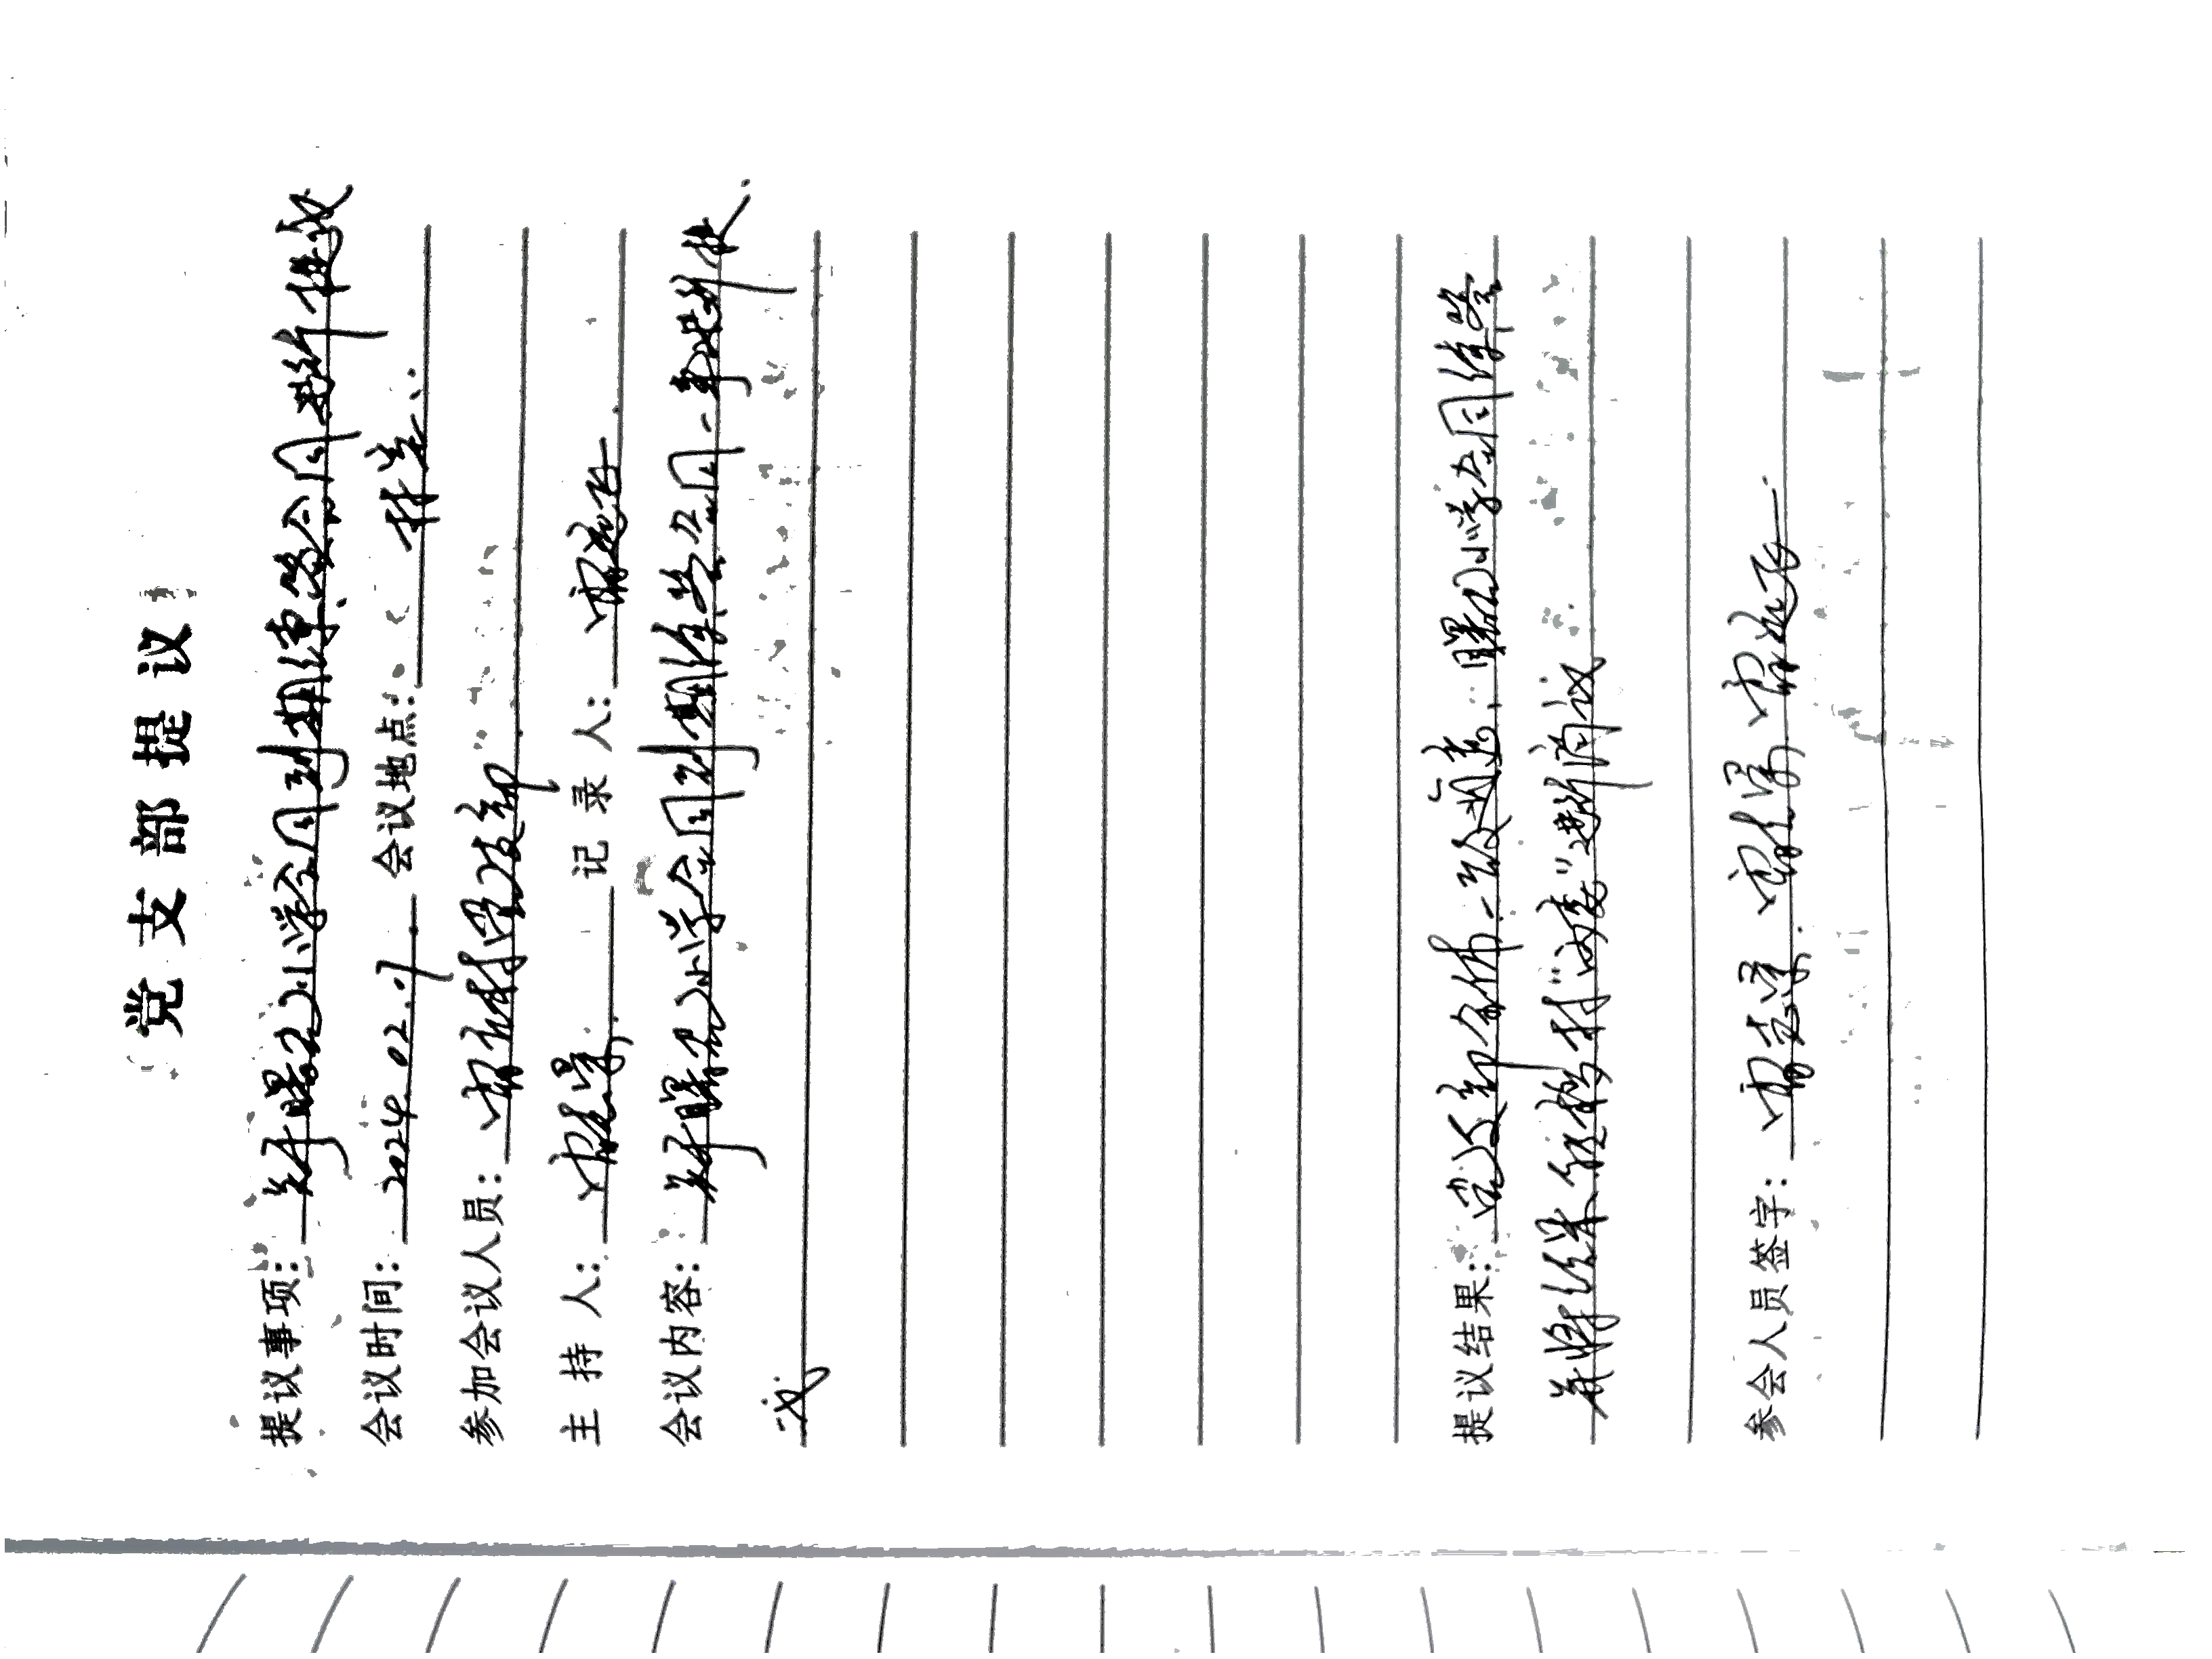 党支部提议
提议事项: 关于曙光小学合同到期续签合同进行提议
会议时间: 2024.02.07. 会议地点: 村室
参加会议人员: 雷庄村党支部
主持人: 雷志 记录人: 雷远
会议内容: 关于曙光小学合同到期续签合同一事进行提
议
提议结果: 党支部全体一致同意,曙光小学合同续签
并将结果 移村“两委”进行商议
参会人员签字: 雷志 雷 雷远